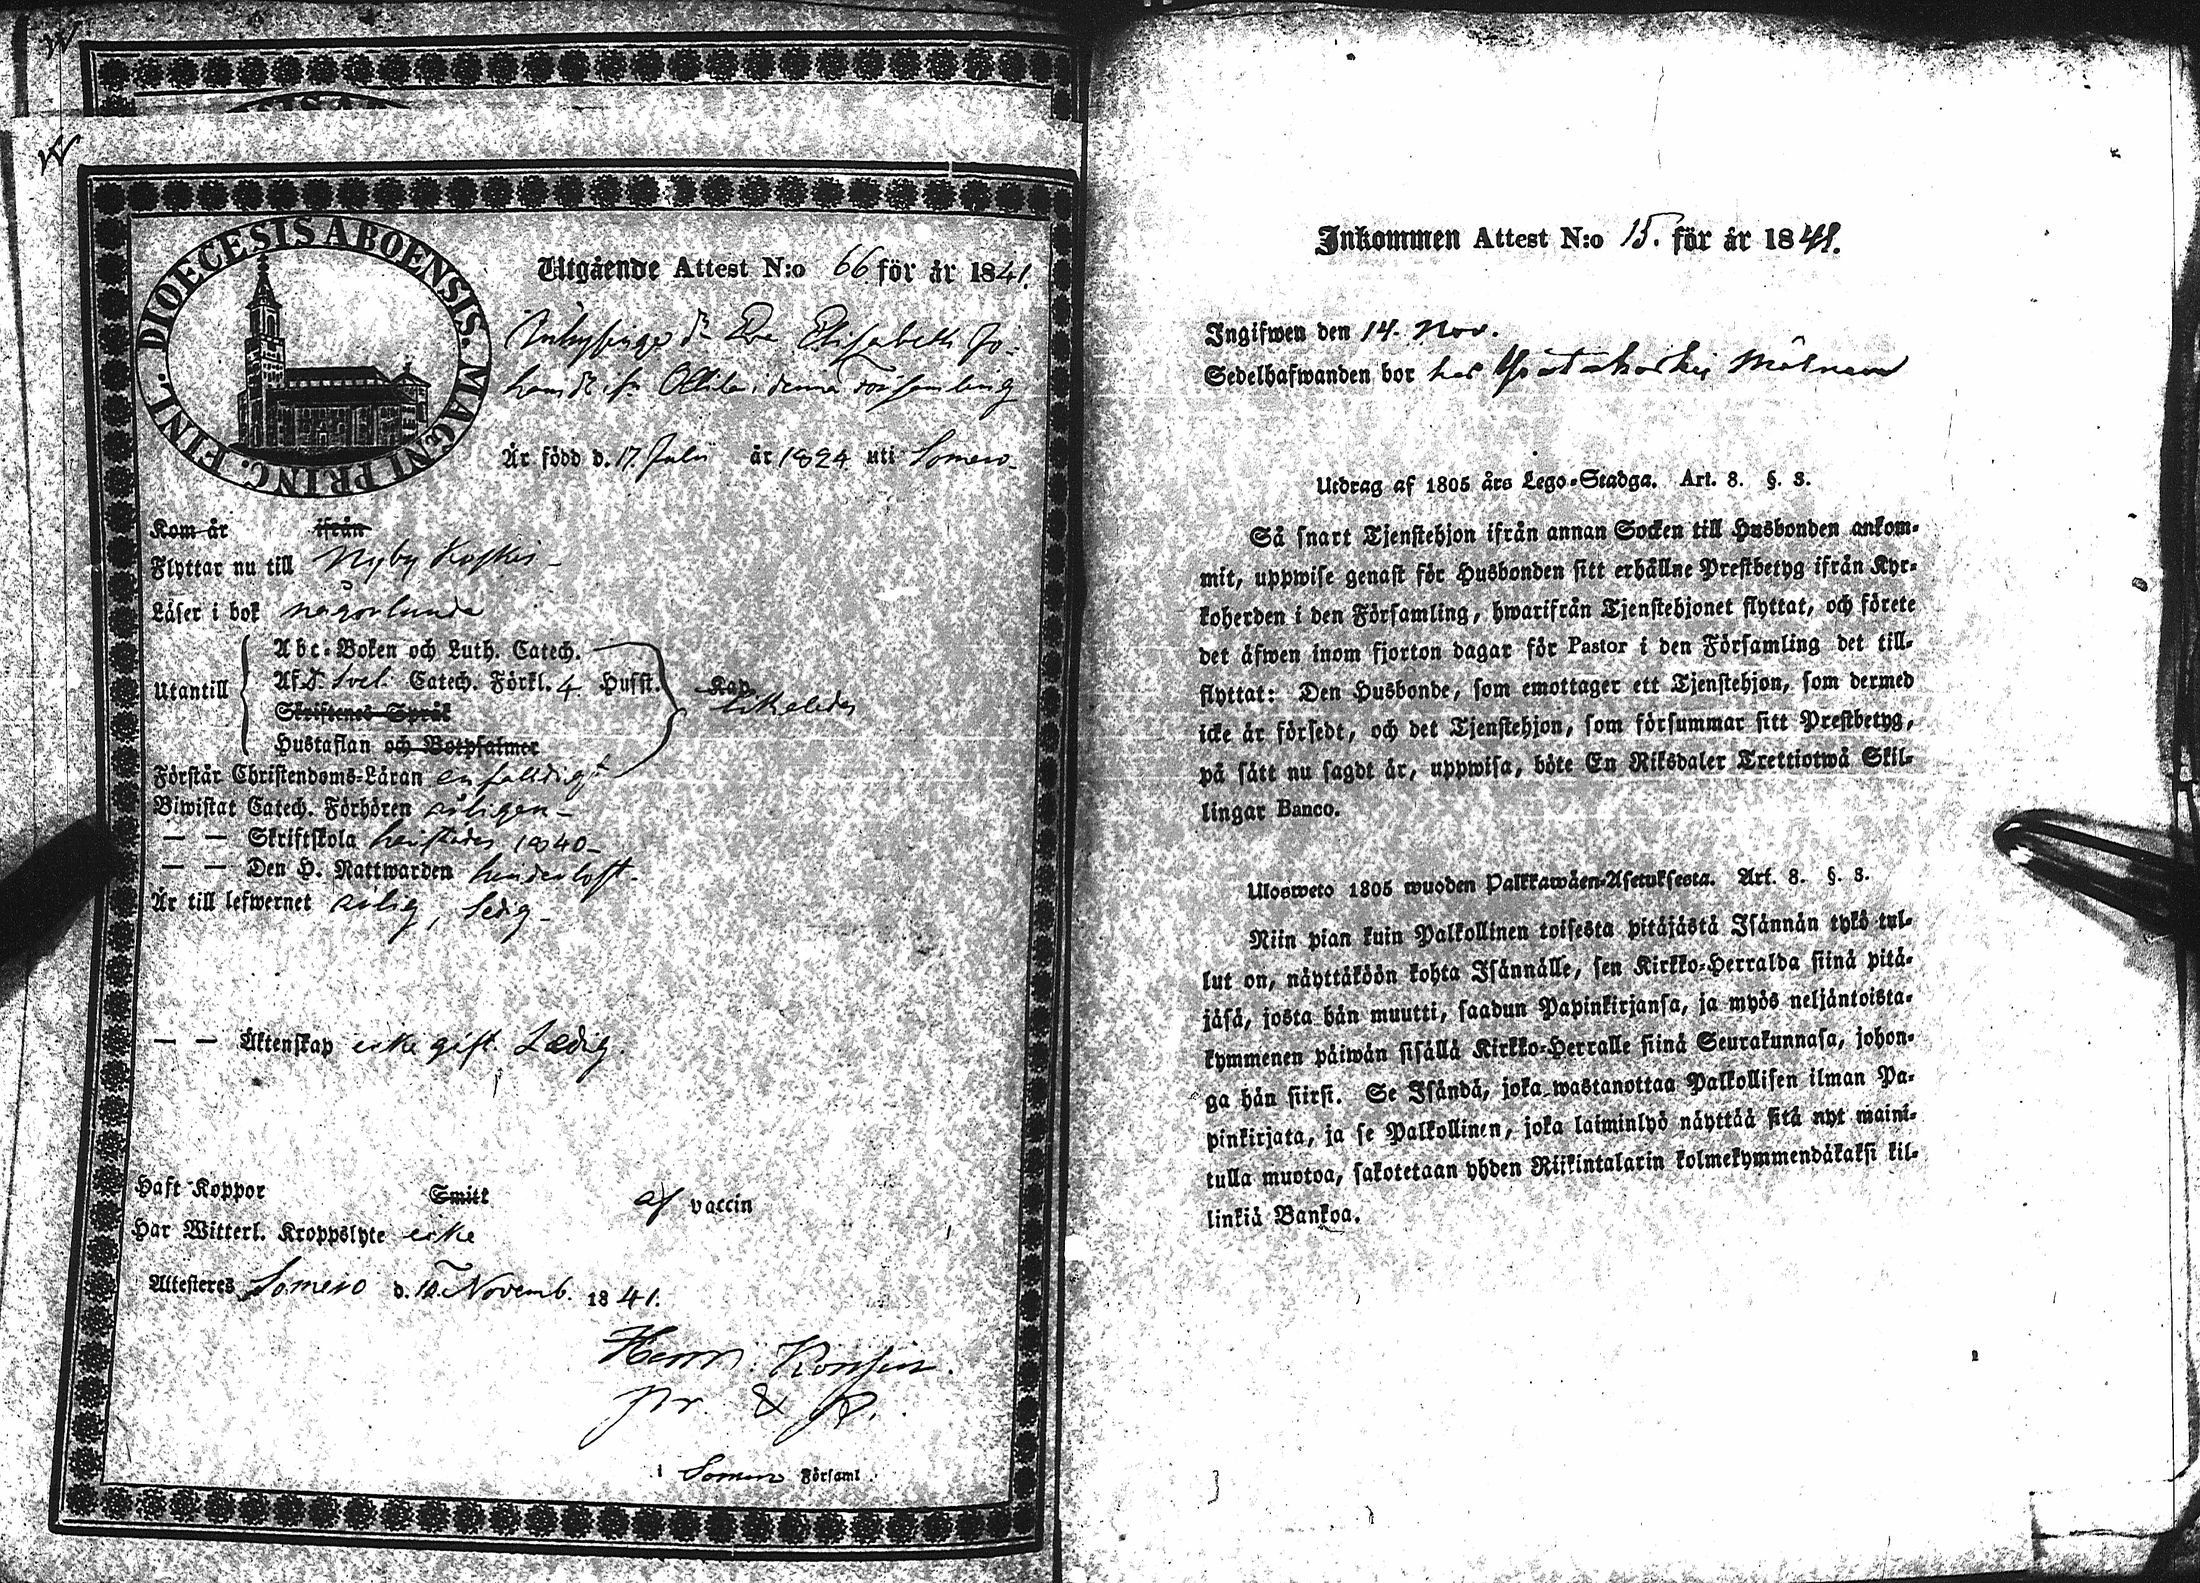 DIOECESIS ABOENSIS. MAGNI PRINC. FINL.
Utgående Attest N:o 66 för år 1841.
Eva Elisabeth Jo-
hansdr ifr. Ollila i denna Församling
Är född d. 17. Julii år 1824 uti Somero
Kom år ifrån
Flyttar nu till Nyby Koskis
Läser i bok någorlunda
Utantill
Abc-Boken och Luth. Catech.
Af D. Svel. Catech. Förkl. 4 Husst. Kap.
likaledes
Skriftenes Språk
Hustaflan och Botpsalmer
Förstår Christendoms-Läran enfaldigt
Biwistat Catech. Förhören årligen
— — Skriftskola bevistades 1840
— — Den H. Nattwarden hinderlöst
Är till lefwernet ärlig, Ledig
— — Äktenskap icke gift. Ledig.
Haft Koppor Smitt af vaccin
Har Witterl. Kroppslyte icke
Attesteras Somero d. 10 Novemb. 1841.
Henr: Konsin.
pr. & P.
i Somero Församl.
Inkommen Attest N:o 15. för år 1841.
Ingifwen den 14. Nov.
Sedelhafwanden bor hos
Utdrag af 1805 års Lego-Stadga. Art. 8. §. 3.
Så snart Tjenstehjon ifrån annan Socken till Husbonden ankom-
mit, uppwise genast för Husbonden sitt erhållne Prestbetyg ifrån Kyr-
koherden i den Församling, hwarifrån Tjenstehjonet flyttat, och förete
det äfwen inom fjorton dagar för Pastor i den Församling det till-
flyttat: Den Husbonde, som emottager ett Tjenstehjon, som dermed
icke är försedt, och det Tjenstehjon, som försummar sitt Prestbetyg,
på sätt nu sagdt är, uppwisa, böte En Riksdaler Trettiotwå Skil-
lingar Banco.
Ulosweto 1805 wuoden Palkkawäen-Asetuksesta. Art. 8. §. 3.
Niin pian kuin Palkollinen toisesta pitäjästä Isännän tykö tul-
lut on, näyttäköön kohta Isännälle, sen Kirkko-Herralda siinä pitä-
jäsä, josta hän muutti, saadun Papinkirjansa, ja myös neljäntoista-
kymmenen päiwän sisällä Kirkko-Herralle siinä Seurakunnasa, johon-
ga hän siirsi. Se Isändä, joka wastanottaa Palkollisen ilman Pa-
pinkirjata, ja se Palkollinen, joka laiminlyö näyttää sitä nyt maini-
tulla muotoa, sakotetaan yhden Riikintalarin kolmekymmendäkaksi kil-
linkiä Bankoa.